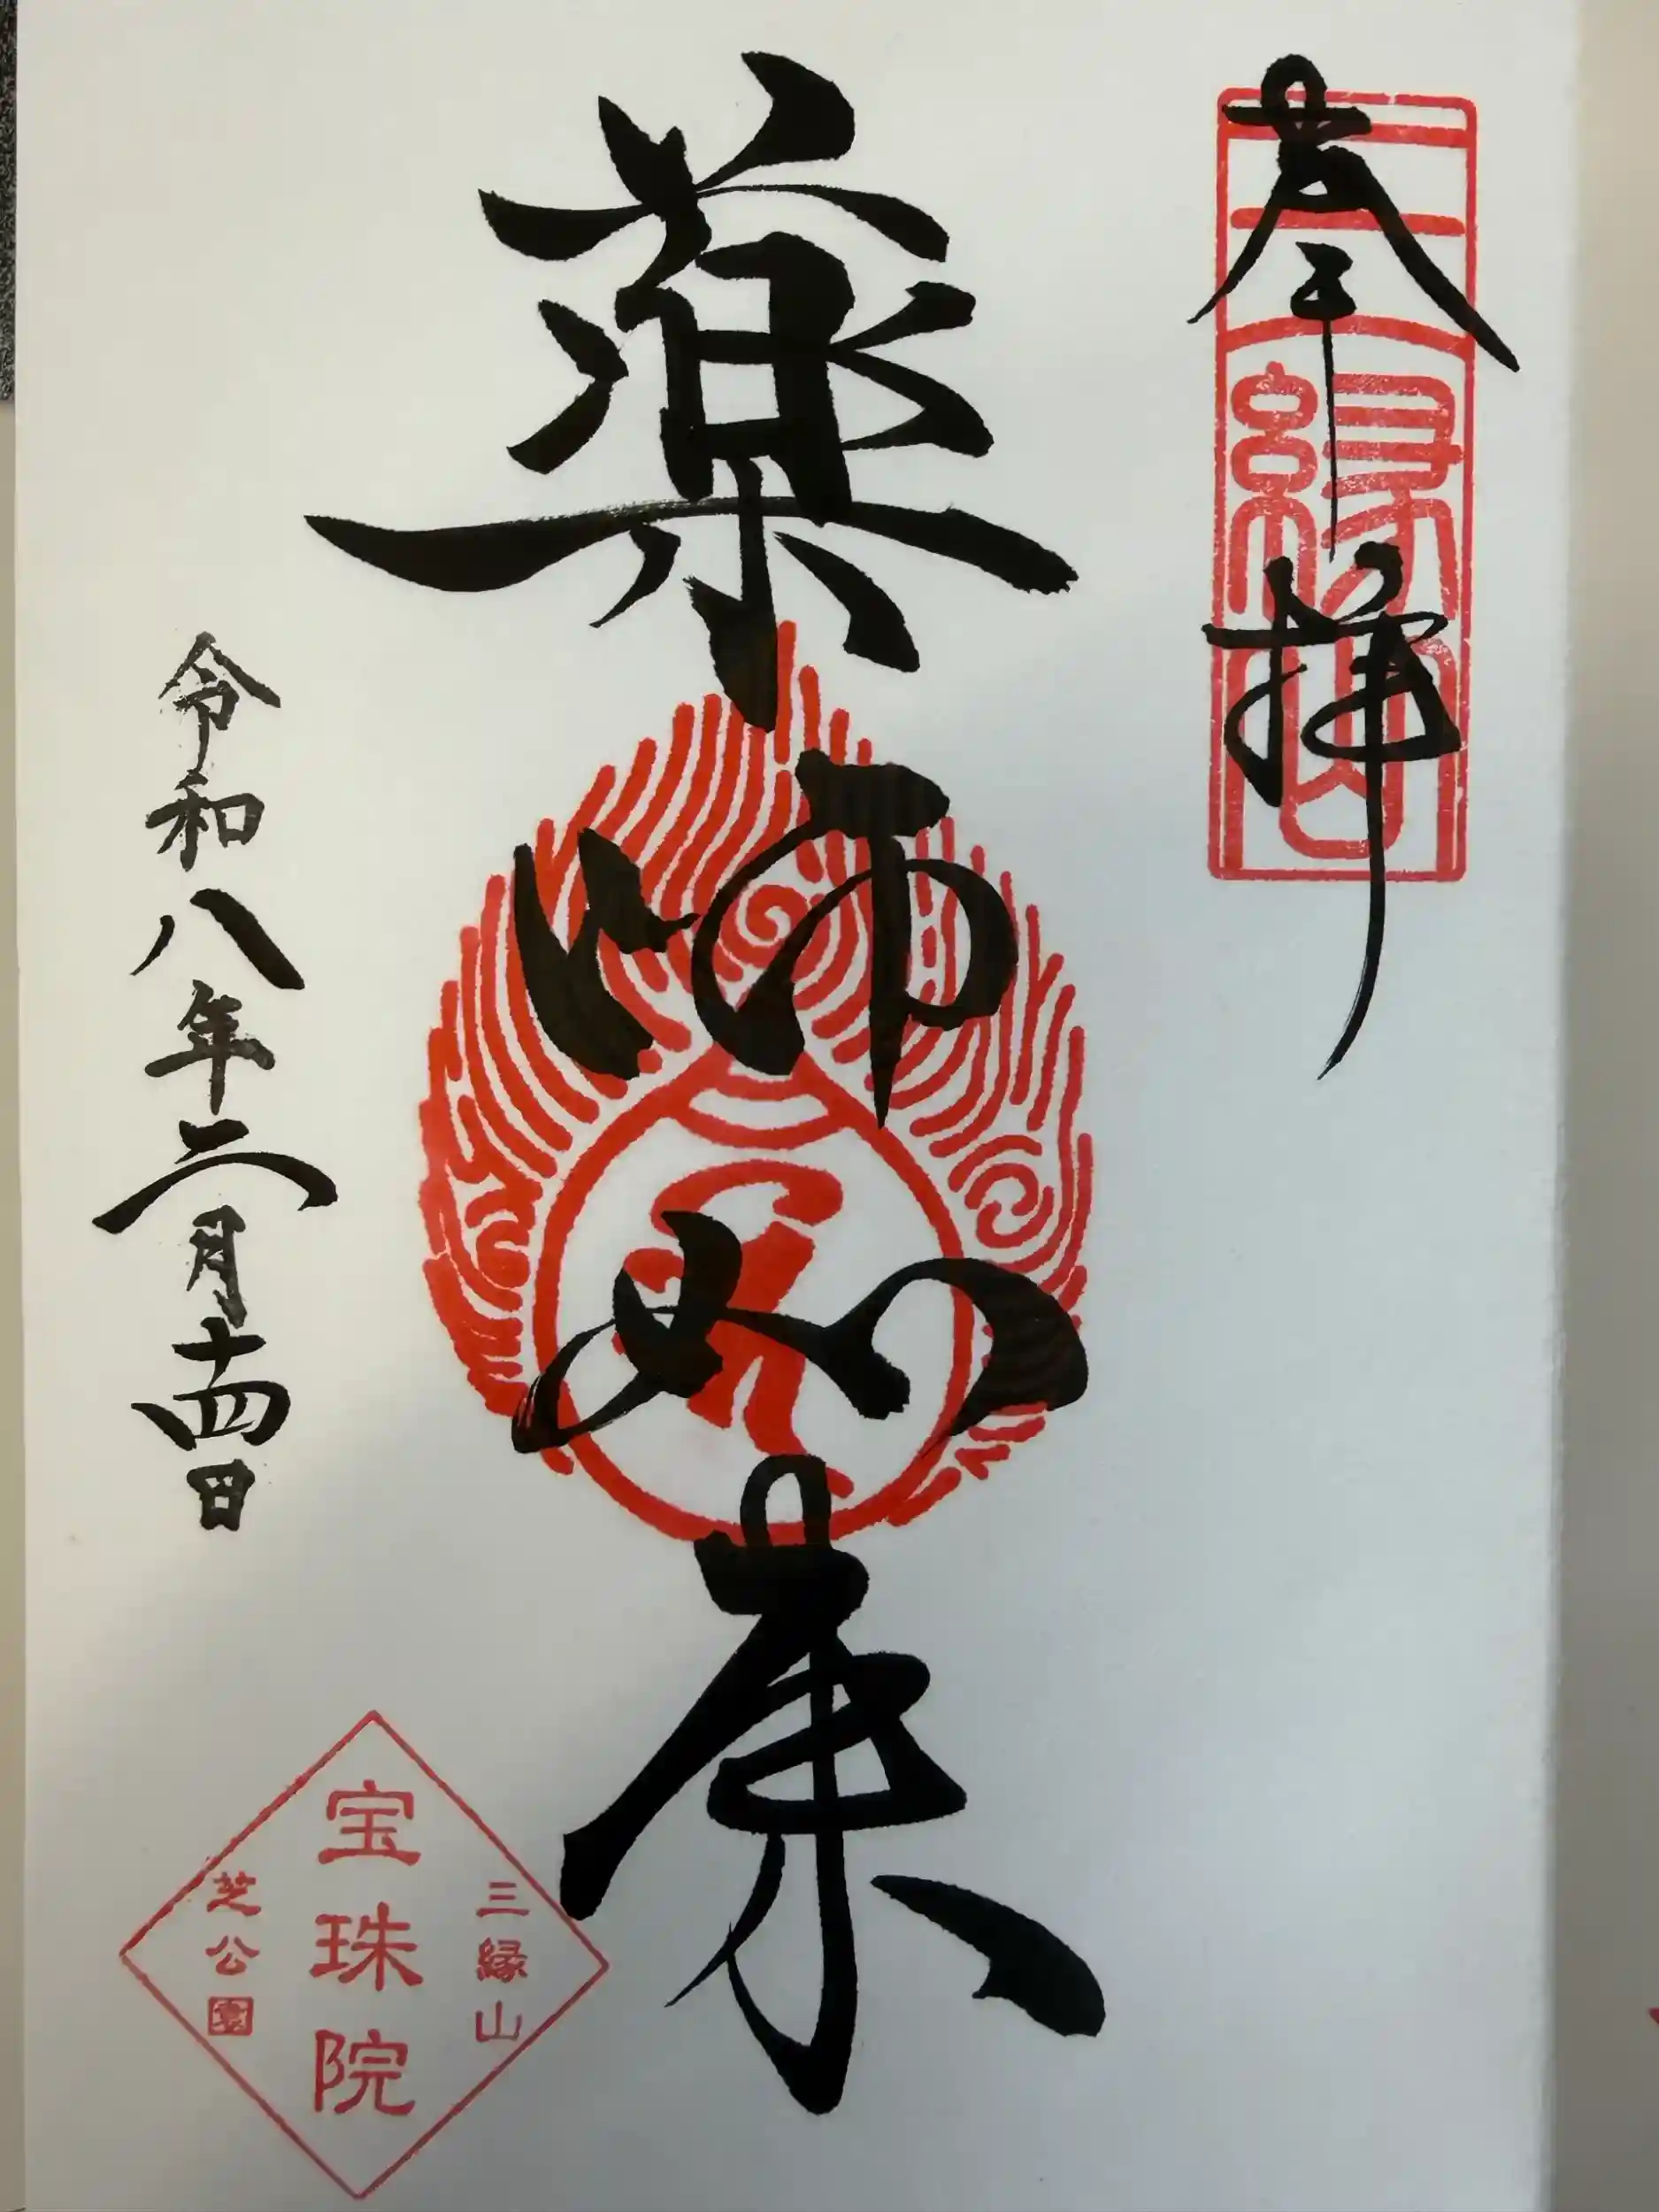 奉拝
三縁山
薬師如来
令和八年二月十四日
三縁山
宝珠院
芝公園